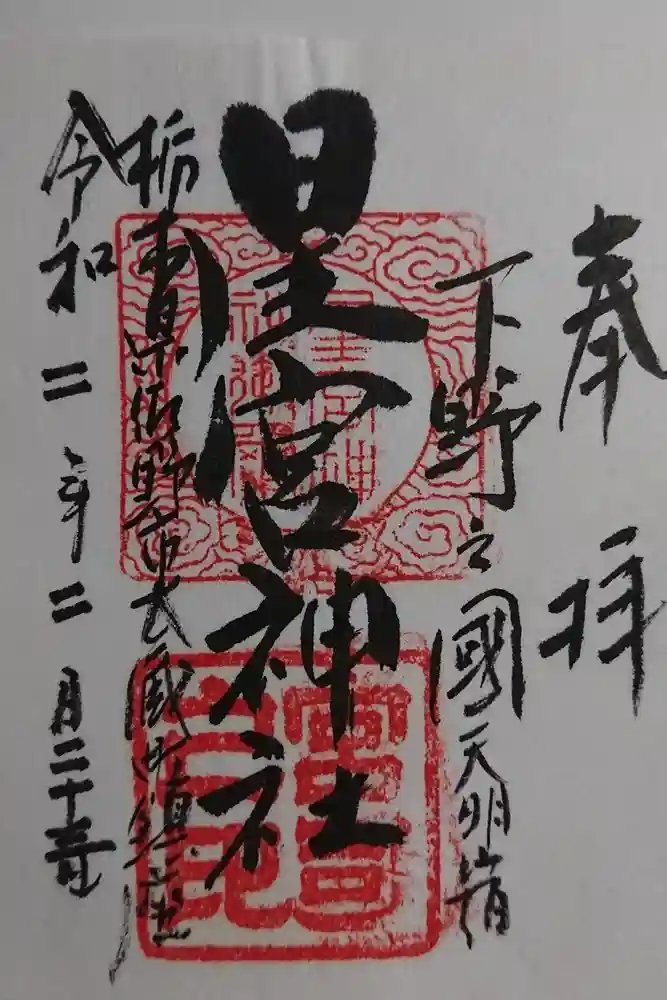 奉拝
下野之國天明宿
星宮神社
栃木県佐野市大蔵中鎮座
令和二年二月二十壱